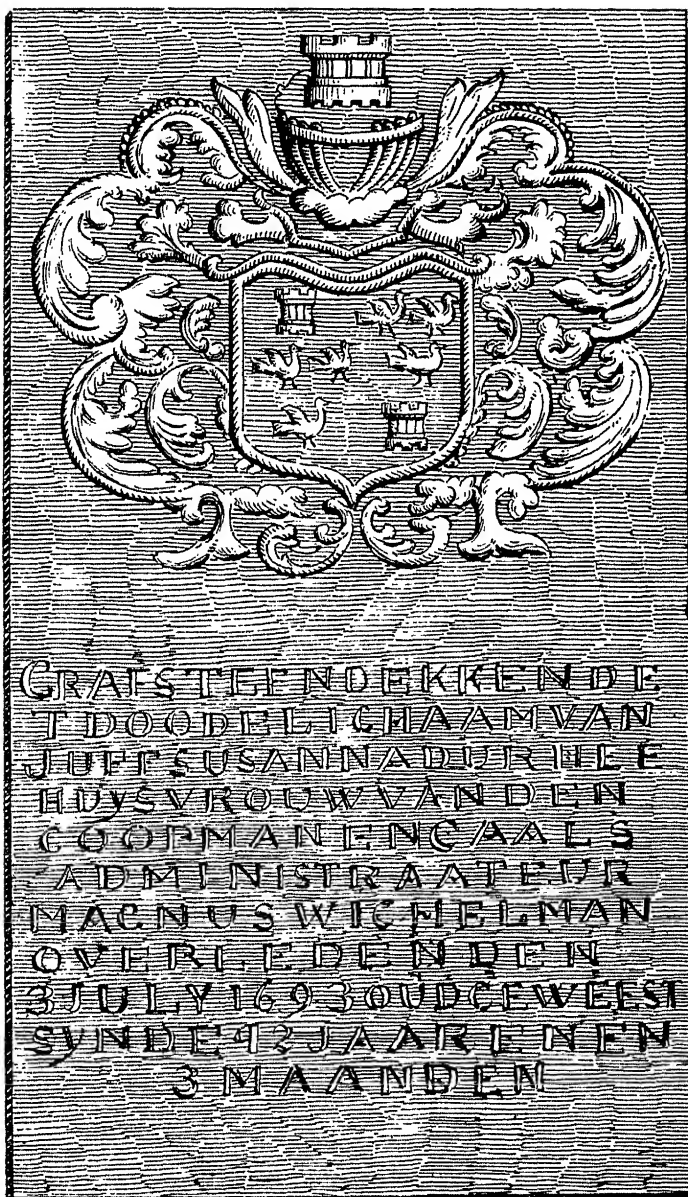 GRAFSTEEN DEKKENDE
T DOODE LICHAAM VAN
JUFF SUSANNA DURHLEE
HUYSVROUW VAN DEN
COOPMAN EN GAALS
ADMINISTRAATEUR
MAGNUS WICHELMAN
OVERLEDEN DEN
3 JULY 1693 OUD GEWEEST
SYNDE 42 JAAREN EN
3 MAANDEN